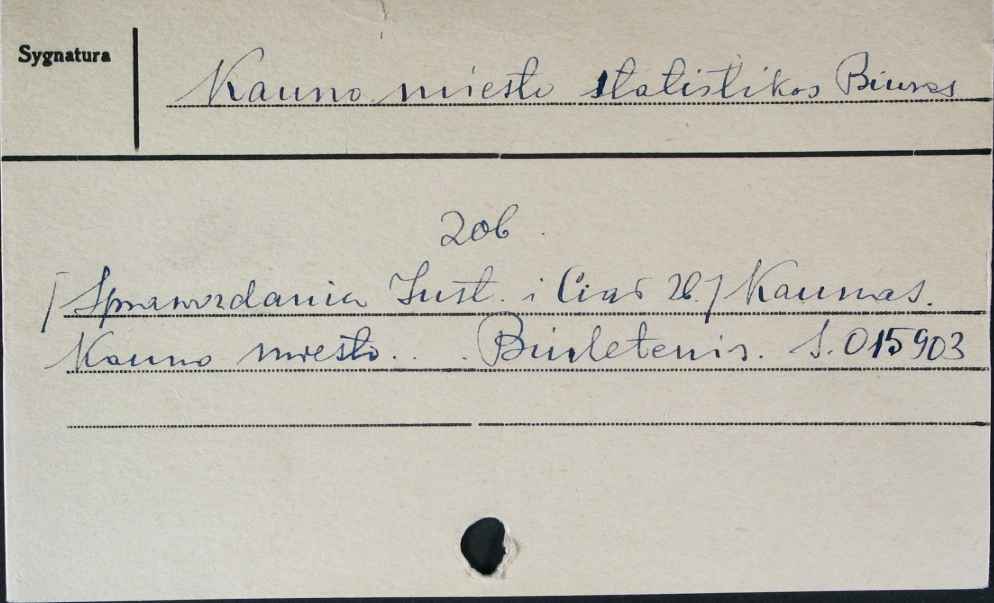 Sygnatura
Kauno miesto statistikos Biuras
Zob.
[Sprawozdania Inst. i Ciał zb.] Kaunas.
Kauno miesto... Biuletenis. S. 015903